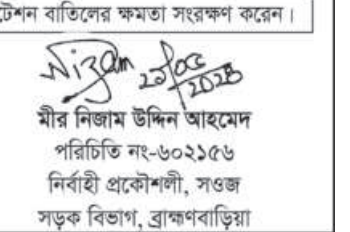 টেশন বাতিলের ক্ষমতা সংরক্ষণ করেন।
Nizam
মীর নিজাম উদ্দিন আহমেদ
পরিচিতি নং-৬০২১৫৬
নির্বাহী প্রকৌশলী, সওজ
সড়ক বিভাগ, ব্রাহ্মণবাড়িয়া